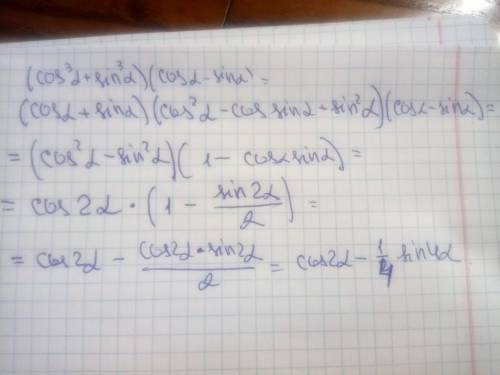 (cos³α+sin³α)(cosα-sinα)=
(cosα+sinα)(cos²α-cos sinα+sin²α)(cosα-sinα)=
=(cos²α-sin²α)(1-cosαsinα)=
=cos2α·(1-sin2α/2)=
=cos2α-cos2α·sin2α/2=cos2α-1/4 sin4α